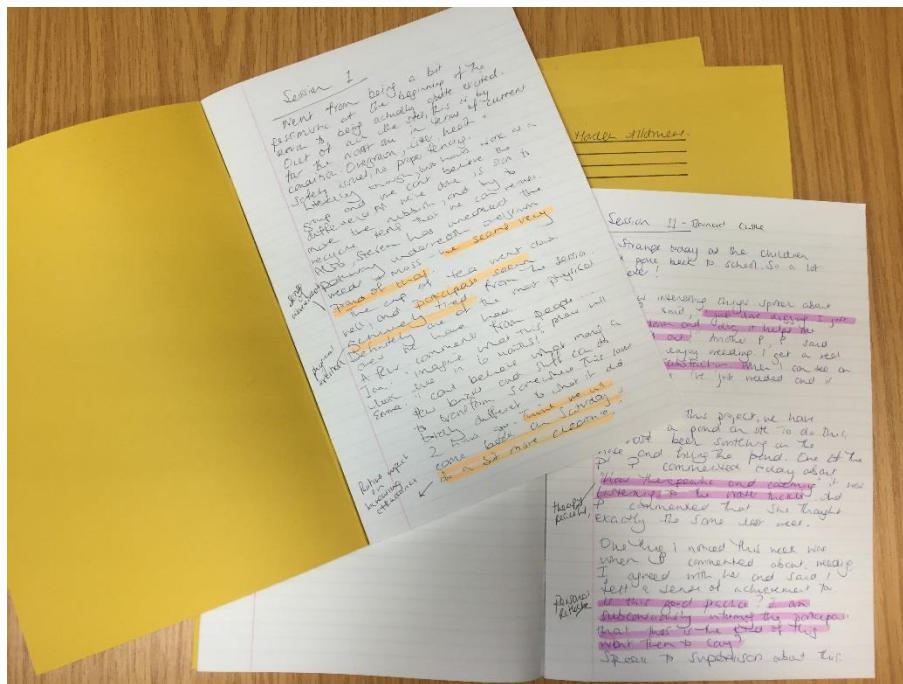 Session 1
Went from being a bit
pessimistic at the beginning of the
session to being actually quite excited.
Out of all the sites, this is by
far the worst one in terms of current
condition. Overgrown, litter, health &
safety issues, no proper fencing.
enough, two hours work as a
group and we cant believe the
difference. All we've done is start to
move the rubbish, and try to
recycle items that we can
Also, Steven has uncovered the
pathway underneath overgrown
weeds & moss - he seems very
proud of that.
The cup of tea went down
well, and participants seem
genuinely tired from the session.
Definitely one of the most physical
ones we have had.
A few comments from people....
Jan: imagine what this place will
look like in 6 months!
Emma: I cant believe what moving a
few bricks and stuff can do
to transform somewhere. This looks
totally different to what it did
2 hours ago.
come back on Saturday &
do a bit more clearing.
physical
Positive impact
on
increasing
attendance
Session 11 - Barnard Castle
Strange today as the children
gone back to school. So a lot
interesting things spoken about
said,
and doing it helps me
out! Another P, P said
enjoy weeding. I get a real
satisfaction when I can see an
I've just weeded and it
This project, we have
a pond on site. To do this,
been something on the
hose and filling the pond. One of the
P P commented today about
"how therapeutic and calming" it was
listening to the water trickle. And
P commented that she thought
exactly the same last week.
therapy
peaceful
One thing i noticed this week was
when P commented about weeding
I agreed with her and said I
felt a sense of achievement to
is this good practice? I am
subconsciously informing the participant
that this is the kind of thing I
want them to say?
Speak to supervision about this.
Personal
Reflection